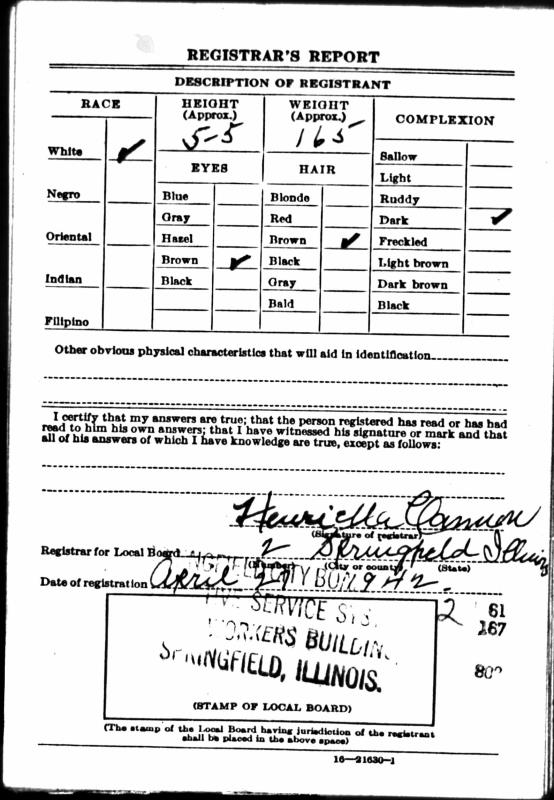 REGISTRAR'S REPORT
DESCRIPTION OF REGISTRANT
RACE
HEIGHT (Approx.)
WEIGHT (Approx.)
COMPLEXION
5-5
165
White ✓
EYES
HAIR
Sallow
Light
Negro
Blue
Blonde
Ruddy
Gray
Red
Dark ✓
Oriental
Hazel
Brown ✓
Freckled
Brown ✓
Black
Light brown
Indian
Black
Gray
Dark brown
Bald
Black
Filipino
Other obvious physical characteristics that will aid in identification
I certify that my answers are true; that the person registered has read or has had
read to him his own answers; that I have witnessed his signature or mark and that
all of his answers of which I have knowledge are true, except as follows:
Henrietta Cannon
(Signature of registrar)
Registrar for Local Board 2 Springfield Illinois
(Number) (City or county) (State)
Date of registration April 27 1942
SERVICE SYS.
WORKERS BUILDING
SPRINGFIELD, ILLINOIS.
2 61
167
(STAMP OF LOCAL BOARD)
(The stamp of the Local Board having jurisdiction of the registrant
shall be placed in the above space)
16—21630-1